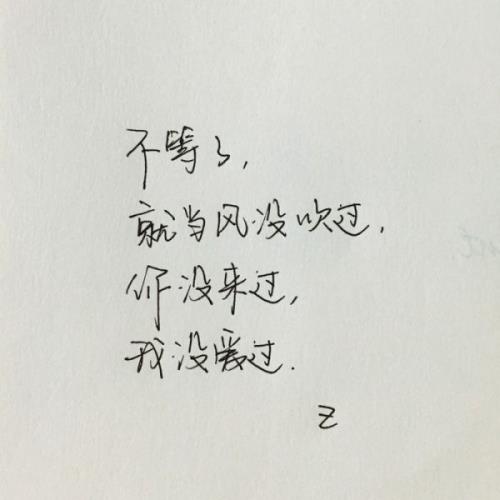 不等了,
就当风没吹过,
你没来过,
我没爱过.
Z